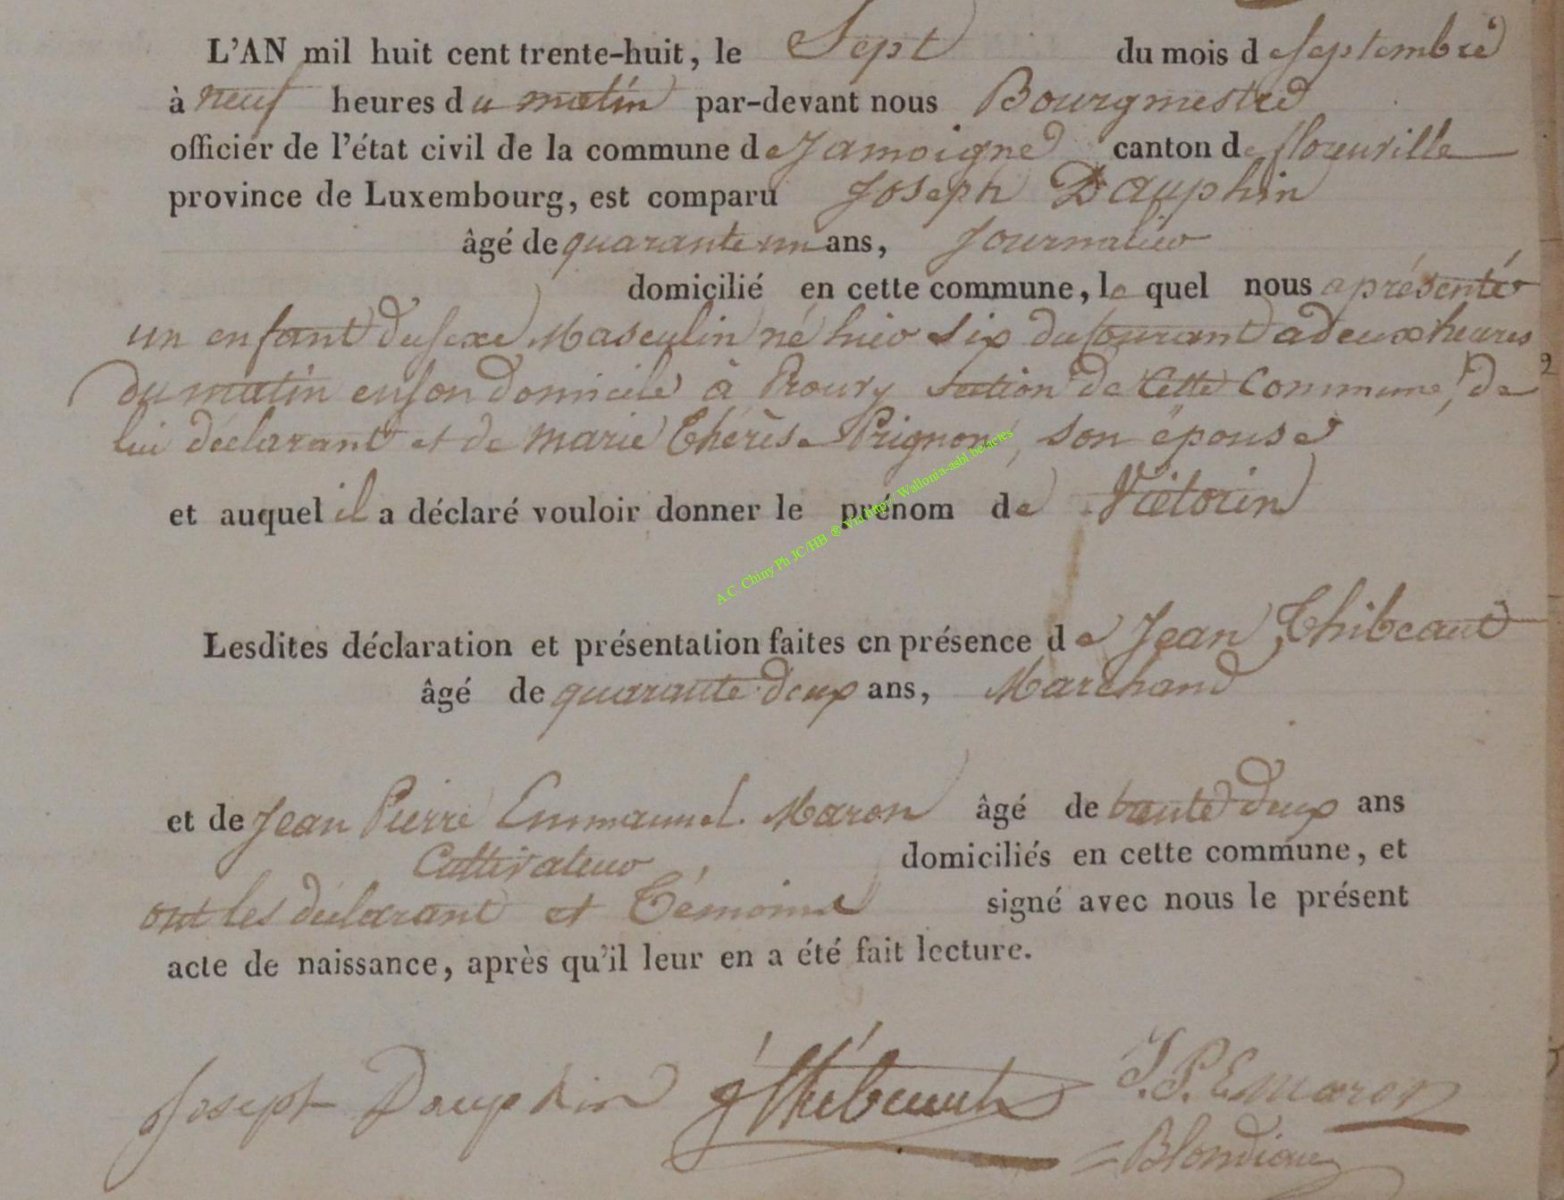 L'AN mil huit cent trente-huit, le Sept du mois de septembre
à neuf heures du matin par-devant nous Bourgmestre
officier de l'état civil de la commune de Jamoigne canton de florenville
province de Luxembourg, est comparu Joseph Dauphin
âgé de quarante un ans, Journalier
domicilié en cette commune, le quel nous a présenté
un enfant du sexe Masculin né hier six du Courant a deux heures
du matin en son domicile à Prouvy section de cette Commune, de
lui déclarant et de marie Thérèse Prignon, son épouse
et auquel il a déclaré vouloir donner le prénom de Victorin
A.C. Chiny Ph JC/HB ® Wallonia-asbl be/actes
Lesdites déclaration et présentation faites en présence de Jean Thibeaut
âgé de quarante-deux ans, Marchand
et de Jean Pierre Emmanuel Maron âgé de trente deux ans
Cultivateur domiciliés en cette commune, et
ont les déclarant et Témoins signé avec nous le présent
acte de naissance, après qu'il leur en a été fait lecture.
Joseph Dauphin J Thibeaut J. P. E maron
Blondiau